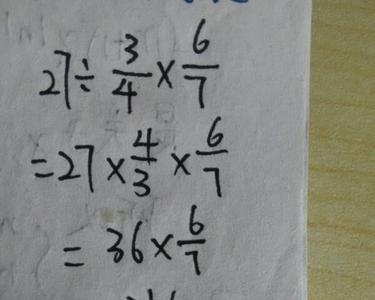 27÷3/4×6/7
=27×4/3×6/7
=36×6/7